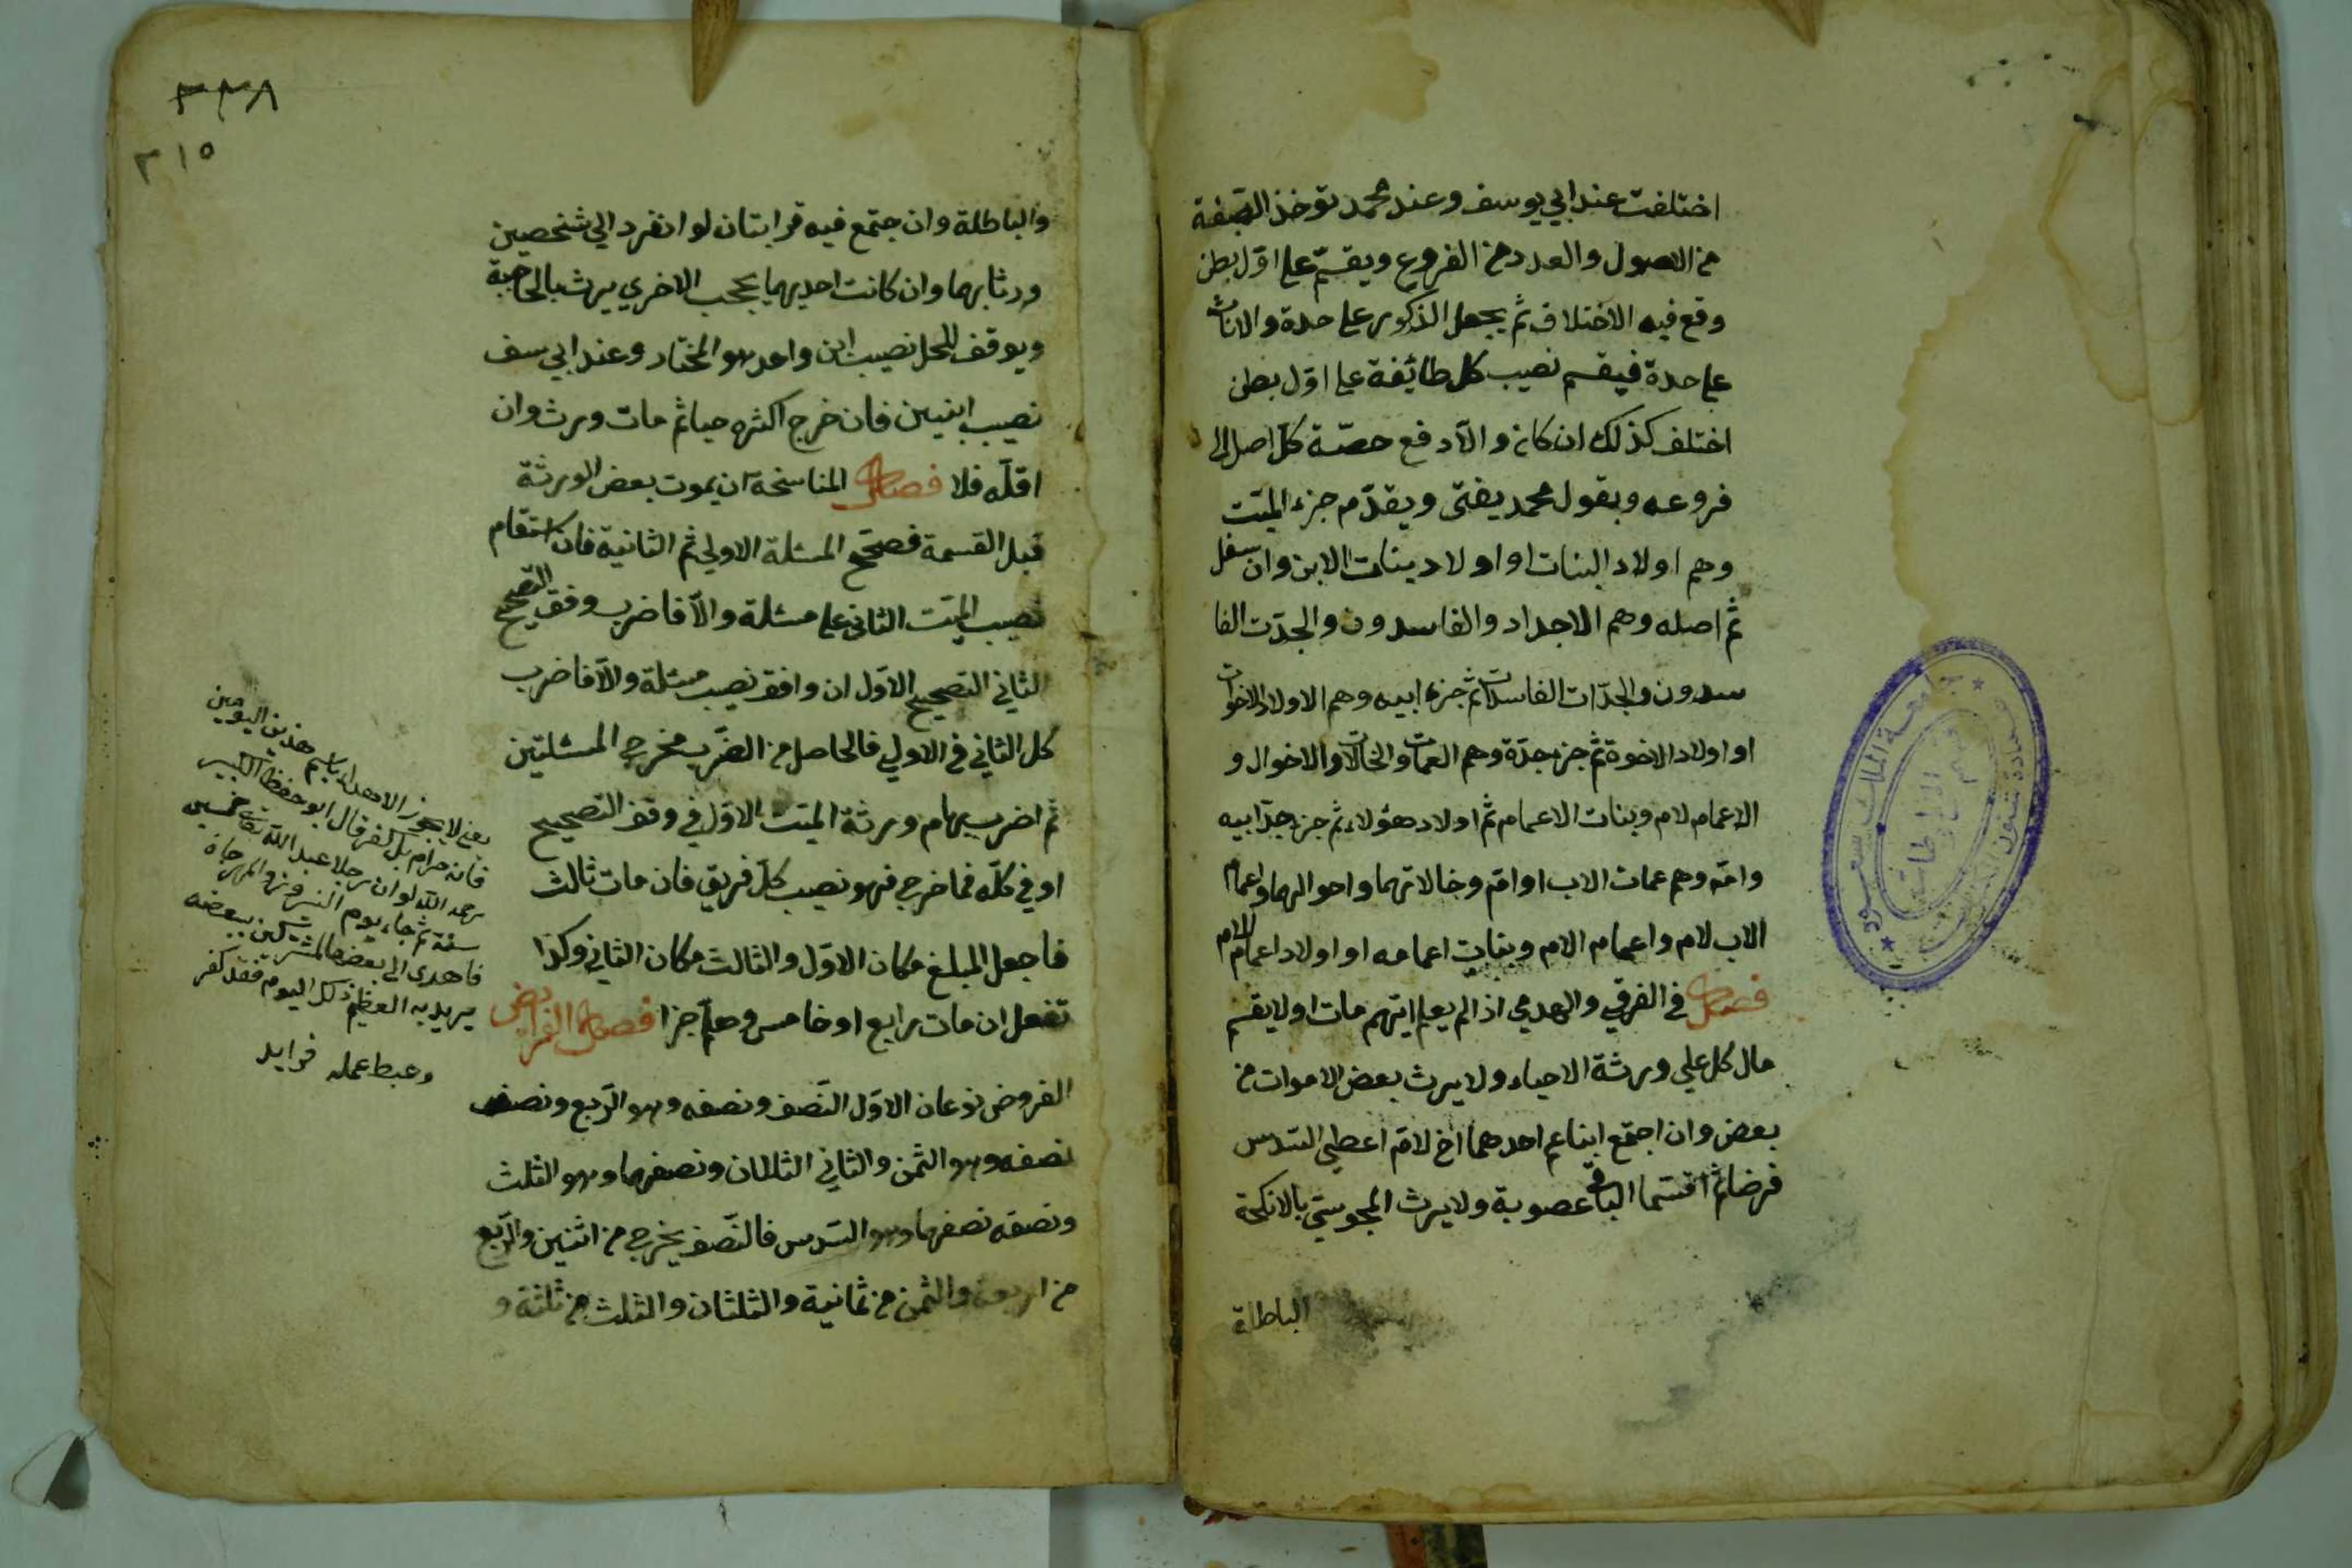 اختلفت عند ابي يوسف وعند محمد تؤخذ الصفة
من الاصول والعدد من الفروع ويقسم على اول بطن
وقع فيه الاختلاف ثم يجعل الذكور على حدة والاناث
على حدة فيقسم نصيب كل طائفة على اول بطن
اختلف كذلك ان كان والا دفع حصة كل اصل الى
فروعه وبقول محمد يفتى ويقدم جزء الميت
وهم اولاد البنات او اولاد بنات الابن وان سفل
ثم اصله وهم الاجداد والفاسدون والجدت الفا
سدون والجدات الفاسدات ثم جزء ابيه وهم الاولاد الاخوات
او اولاد الاخوة ثم جزء جده وهم العمات والخالات والاخوال و
الاعمام لام وبنات الاعمام ثم اولاد هؤلاء ثم جزء جد ابيه
وامه وهم عمات الاب او امه وخالاتهما واحوالهما واعمام
الاب لام واعمام الام وبنات اعمامه او اولاد اعمام الام
فصل في الغرقي والهدمي اذا لم يعلم ايهم مات اولا يقسم
مال كل علي ورثة الاحياء ولا يرث بعض الاموات من
بعض وان اجتمع ابنا عم احدهما اخ لام اعطي السدس
فرضا ثم اقتسما الباقي عصوبة ولا يرث المجوسي بالانكحة
الباطلة
جامعة الملك سعود
٣٣٨
٣١٥
والباطلة وان جتمع فيه قرابتان لو انفرد الي شخصين
ورثا بهما وان كانت احديهما تحجب الاخري يرث بالحاجبة
ويوقف للحمل نصيب ابن واحد هو المختار وعند ابي سف
نصيب ابنين فان خرج اكثره حيا ثم مات ورث وان
اقله فلا فصل المناسخة ان يموت بعض الورثة
قبل القسمة فصحح المسئلة الاولي ثم الثانية فان استقام
نصيب الميت الثاني على مسئلة والا فاضرب وفق التصحيح
الثاني التصحيح الاول ان وافق نصيب مسئلة والا فاضرب
كل الثاني في الاولي فالحاصل من الضرب مخرج المسئلتين
ثم اضرب سهام ورثة الميت الاول في وفق التصحيح
او في كله فما خرج فهو نصيب كل فريق فان مات ثالث
فاجعل المبلغ مكان الاول والثالث مكان الثاني وكذا
تفعل ان مات رابع او خامس وهلم جرا فصل الفرايض
الفروض نوعان الاول النصف ونصفه وهو الربع ونصف
نصفه وهو الثمن والثاني الثلثان ونصفهما وهو الثلث
ونصفه نصفهما وهو السدس فالنصف يخرج من اثنين والربع
من اربعة والثمن من ثمانية والثلثان والثلث من ثلثة و
يعني لا يجوز الاهداء باسم هذين اليومين
فانه حرام بل كفر قال ابو حفظ الكبير
رحمه الله لو ان رجلا عبد الله تعالى خمسين
سنة ثم جاء يوم النيروز والمهرجان
فاهدى الى بعض المشركين ببيضة
يريد به العظيم ذلك اليوم فقد كفر
وحبط عمله فرايد